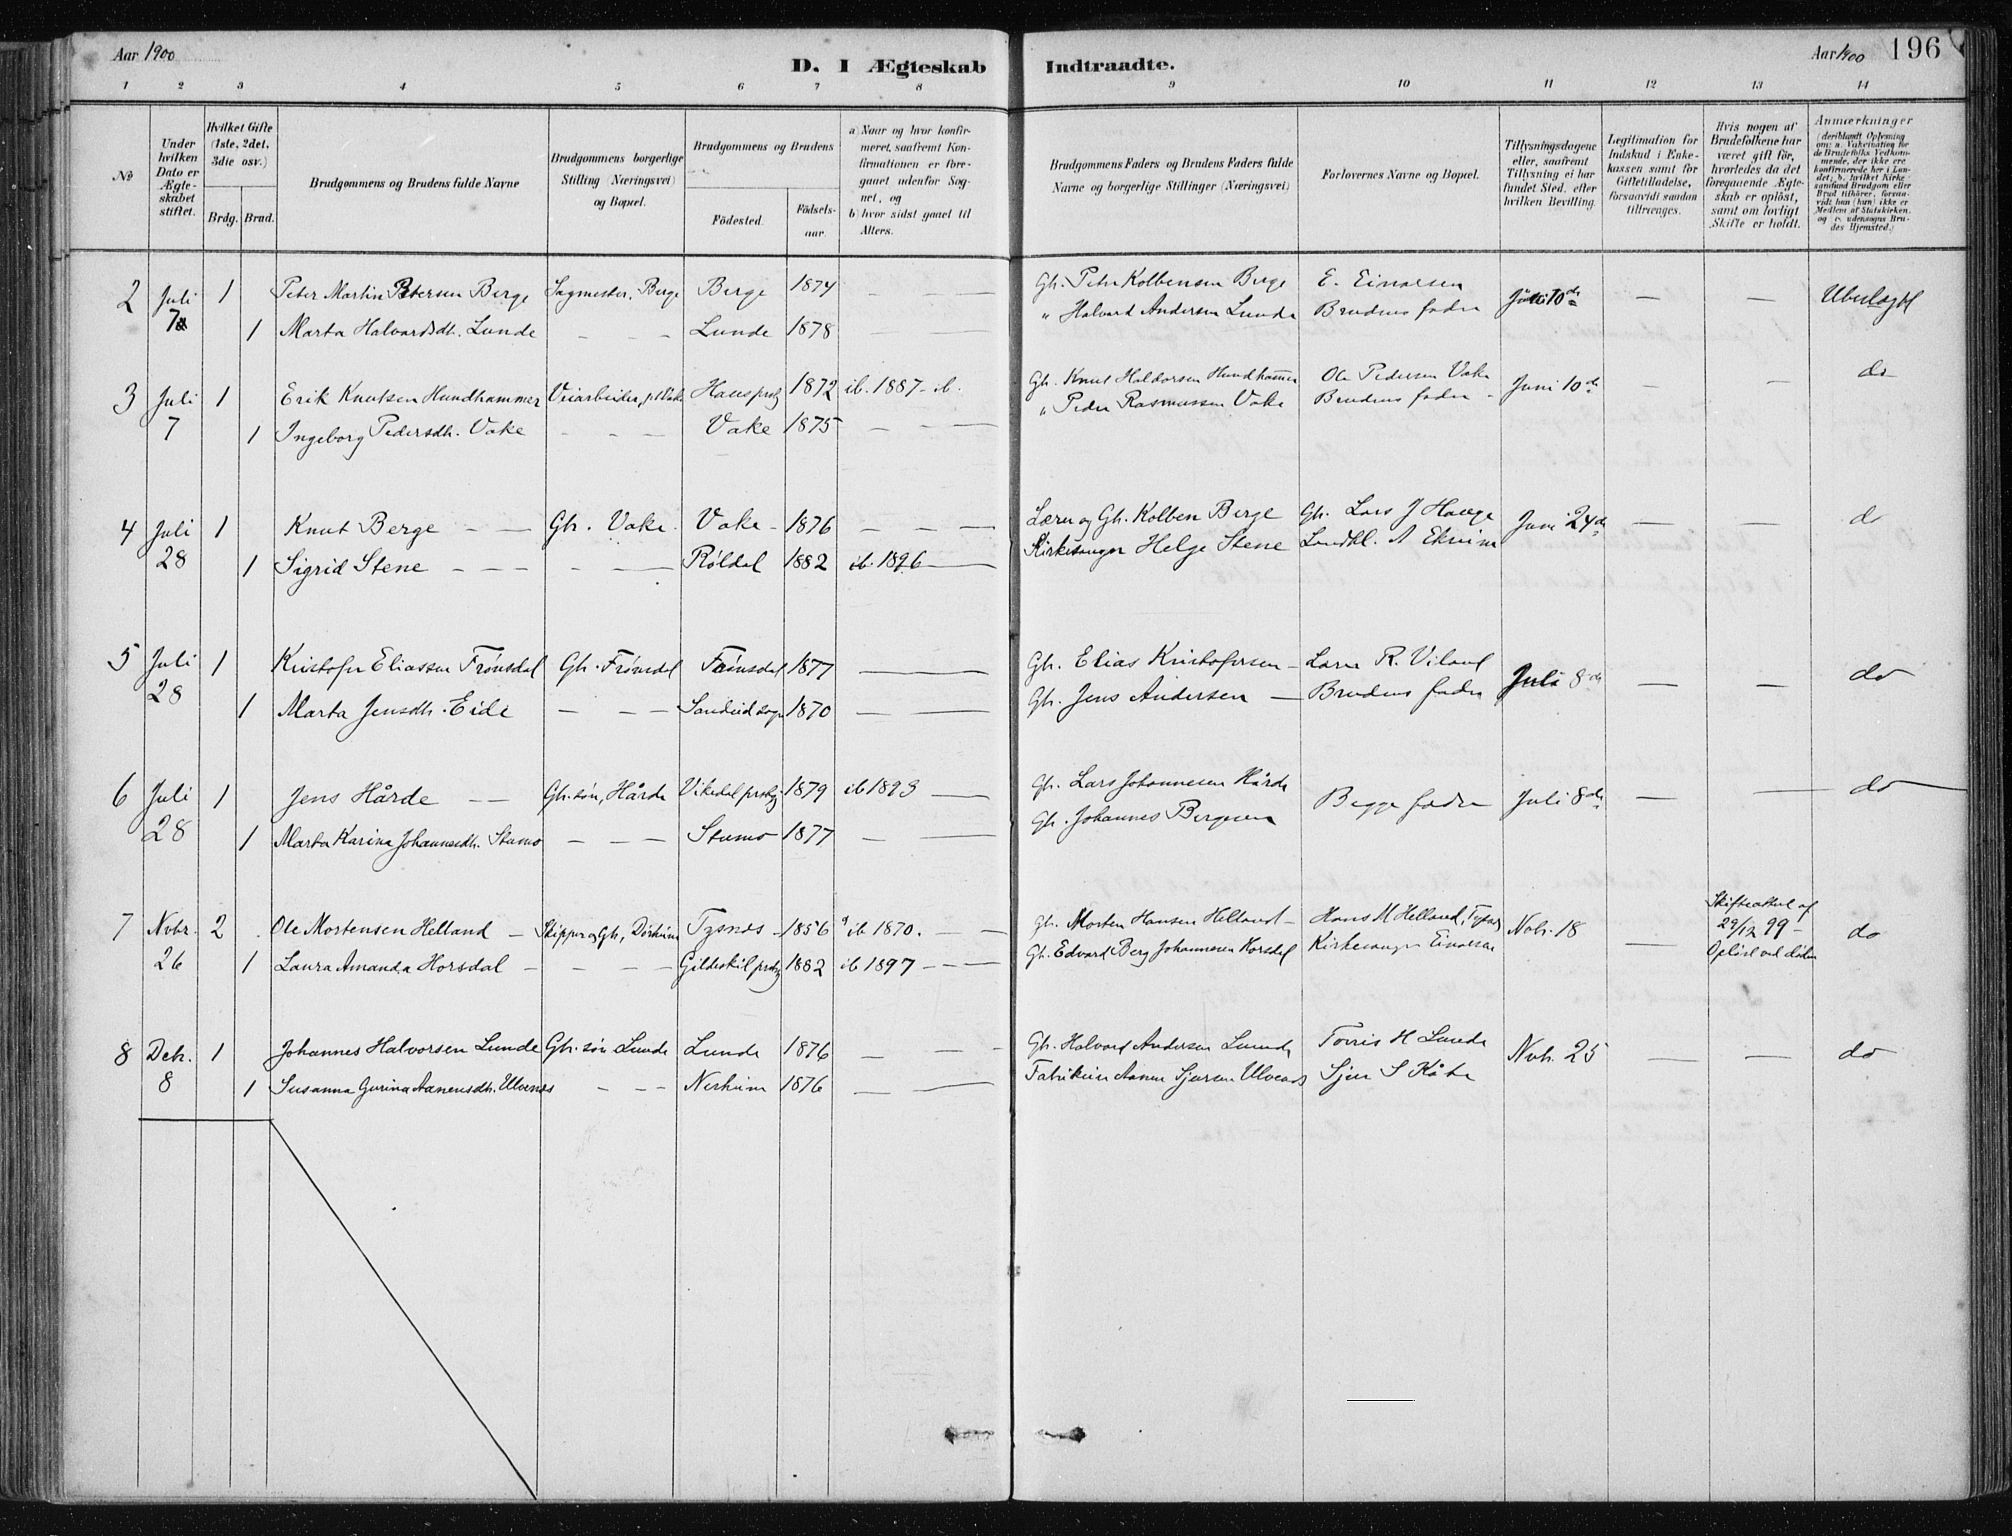 Aar 1900
D. I Ægteskab Indtraadte.
Aar 1900 196
1 2 3 4 5 6 7 8 9 10 11 12 13 14
No
Under hvilken Dato er Ægteskabet stiftet.
Hvilket Gifte (1ste, 2det, 3die osv.)
Brdg. Brud.
Brudgommens og Brudens fulde Navne
Brudgommens borgerlige Stilling (Næringsvei) og Bopæl.
Brudgommens og Brudens
Fødested. Fødselsaar.
a) Naar og hvor konfirmeret, saafremt Konfirmationen er foregaaet udenfor Sognet, og
b) hvor sidst gaaet til Alters.
Brudgommens Faders og Brudens Faders fulde Navne og borgerlige Stillinger (Næringsvei)
Forlovernes Navne og Bopæl.
Tillysningsdagene eller, saafremt Tillysning ei har fundet Sted, efter hvilken Bevilling.
Legitimation for Indskud i Enkekassen samt for Giftetilladelse, forsaavidt saadan tiltrænges.
Hvis nogen af Brudefolkene har været gift før, hvorledes da det foregaaende Ægteskab er opløst, samt om lovligt Skifte er holdt.
Anmærkninger (deriblandt Oplysning om: a. Vakcination for de Brudefolks Vedkommende, der ikke ere konfirmerede her i Landet; b. hvilket Kirkesamfund Brudgom eller Brud tilhører, forsaavidt han (hun) ikke er Medlem af Statskirken, og c. udensogns Brudes Hjemsted.)
2 Juli 1 Peter Martin Petersen Berge Sagmester, Berge Berge 1874 — — — Gh. Peter Kolbensen Berge E. Einarsen Juni 10de — — Ubeslægtet
7 1 Marta Halvardsdh. Lunde - - - Lunde 1878 — — " Halvard Andersen Lunde Brudens fader
3 Juli 1 Erik Knutsen Hundhammer Veiarbeider, Hausprstg 1872 ib. 1887 - ib. Gh. Knut Haldorsen Hundhammer Ole Pedersen Vake Juni 10de — — do
7 1 Ingeborg Pedersdh. Vake - - - Vake 1875 — — — " Peder Rasmussen Vake Brudens fader
4 Juli 1 Knut Berge — — Gh. Vake. Vake - 1876 — — — Lærer og Gh. Kolben Berge Gh. Lars J Hauge Juni 24de — — do
28 1 Sigrid Stene - - - - — Røldal 1882 ib. 1896 — — Kirkesanger Helge Stene Landhl. A Ekrim
5 Juli 1 Kristofer Eliassen Frønsdal Gh. Frønsdal Frønsdal 1877 — Gh. Elias Kristofersen — Lærer R. Viland Juli 8de — — do
28 1 Marta Jensdh. Eide — — — Sandeid sogn 1870 — — Gh. Jens Andersen — Brudens fader
6 Juli 1 Jens Hårde — Gh. søn, Hårde Vikedal prstg 1879 ib 1893 — Gh. Lars Johannesen Hårde Begge fædre Juli 8de — — do
28 1 Marta Karina Johannesdh. Stumo — — — Stumo 1877 — — Gh. Johannes Bergesen
7 Nvbr. 2 Ole Mortensen Helland — Skipper og Gh, Dørheim Tysnes - 1856 ib 1870. — — Gh. Morten Hansen Helland — Hans M Helland, Tysnes Nvb. 18 — Skifteattest af 29/12 99 - Opløst ved døden do
26 1 Laura Amanda Horsdal — — — Gildeskål prstg 1882 ib 1897 — — — Gh. Edvard Berg Johannesen Horsdal Kirkesanger Einarsen
8 Dek. 1 Johannes Halvorsen Lunde Gh. søn Lunde Lunde 1876 — — — Gh. Halvard Andersen Lunde Torris H Lunde Nvb. 25 — — do
8 1 Susanna Gurina Aanensdh. Ulvenes - - — Nerheim 1876 — — Aanen Sjursen Ulvenes Sjur S Kåte